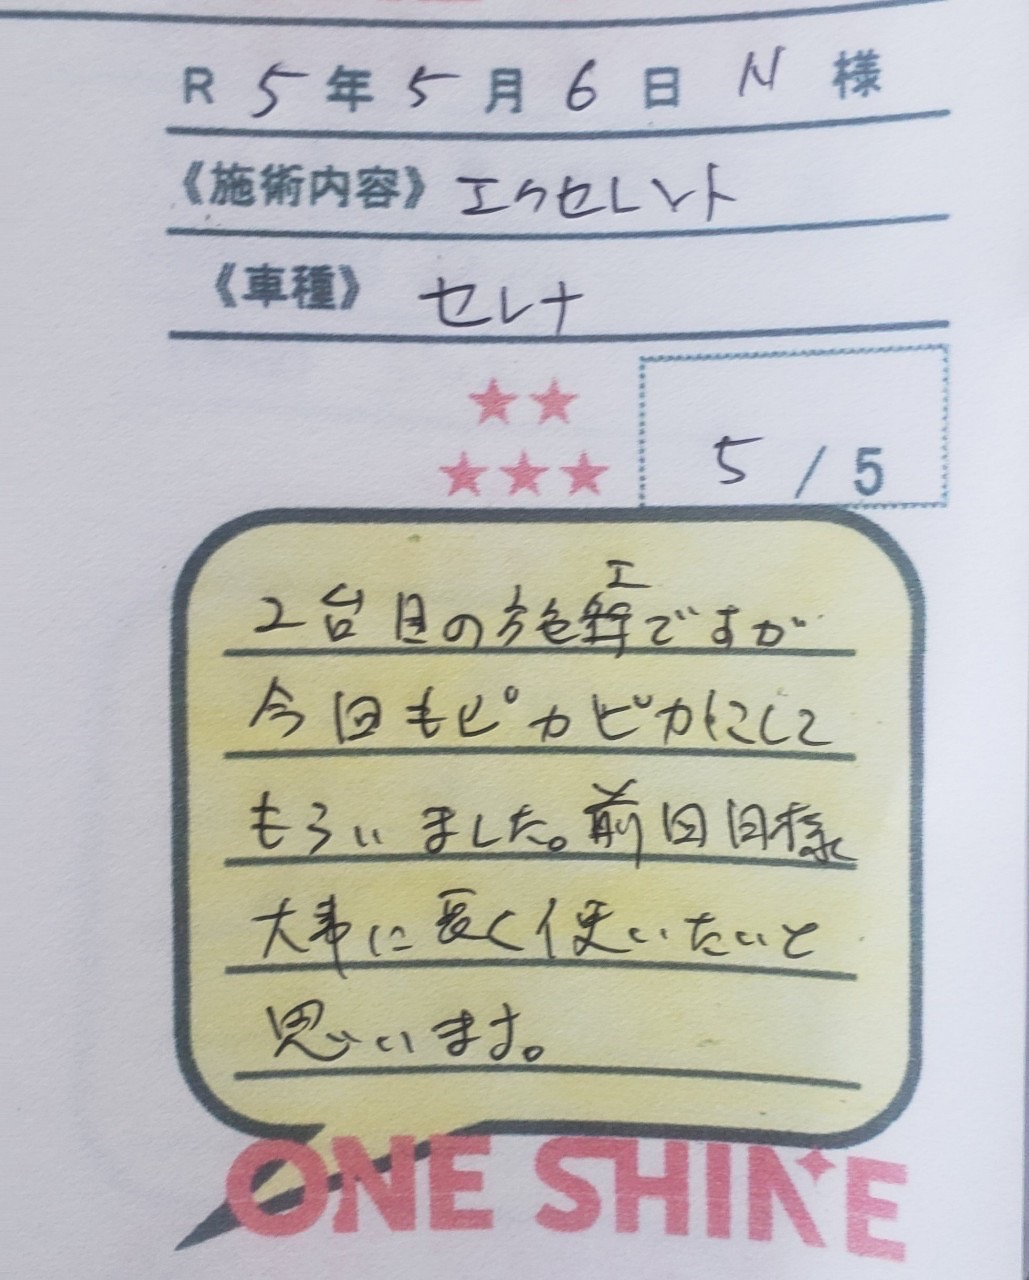 R 5年5月6日 N 様
《施術内容》エクセレント
《車種》セレナ
★★
★★★ 5/5
2台目の施工ですが
今回もピカピカにして
もらいました。前回同様
大事に長く使いたいと
思います。
ONE SHINE